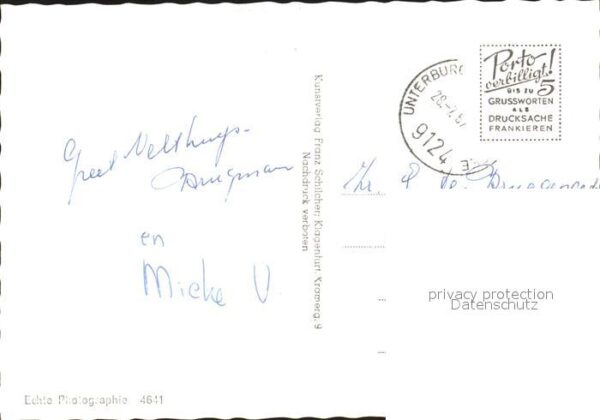 Greet Velthuys-
Brugman
en
Mieke V.
Kunstverlag Franz Schilcher, Klagenfurt, Kromerg. 9
Nachdruck verboten
UNTERBURG
9124
Porto
verbilligt!
BIS ZU 5
GRUSSWORTEN
ALS
DRUCKSACHE
FRANKIEREN
privacy protection
Datenschutz
Echte Photographie 4641